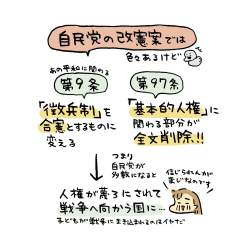 自民党の改憲案では
色々あるけど
あの平和に関わる
第9条
「徴兵制」を
合憲とするものに
変える
第97条
「基本的人権」に
関わる部分が
全文削除!!
つまり
自民党が
多数になると
人権が蔑ろにされて
戦争へ向かう国に…
子どもが戦争にまき込まれるのはイヤだ
信じられんが
まじなのです